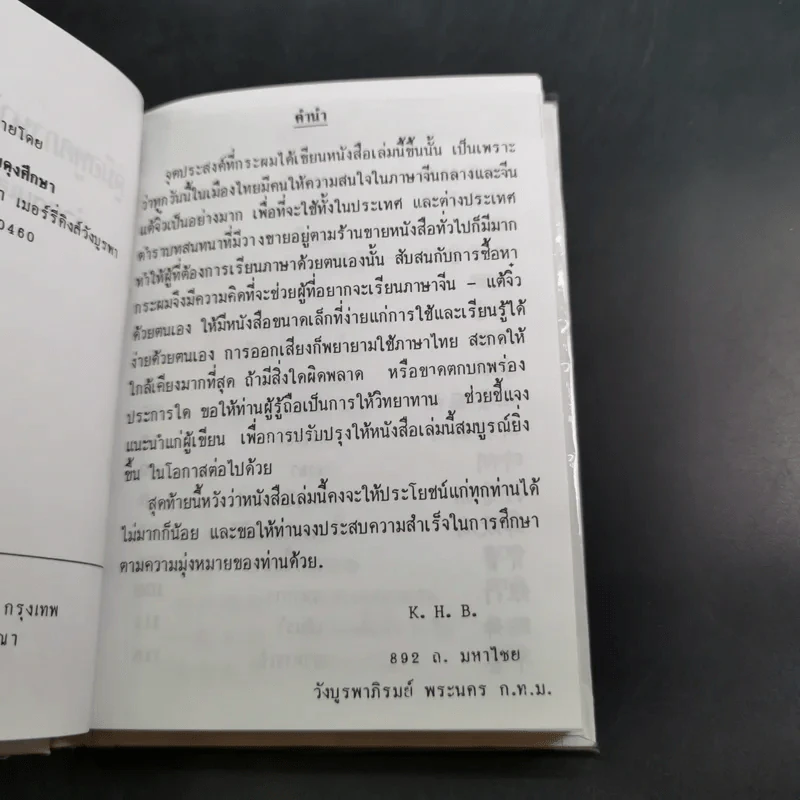 ายโดย
ดุงศึกษา
า เมอร์รี่คิงส์วังบูรพา
0460
กรุงเทพ
ณา
คำนำ
จุดประสงค์ที่กระผมได้เขียนหนังสือเล่มนี้ขึ้นนั้น เป็นเพราะ
ว่าทุกวันนี้ในเมืองไทยมีคนให้ความสนใจในภาษาจีนกลางและจีน
แต้จิ๋วเป็นอย่างมาก เพื่อที่จะใช้ทั้งในประเทศ และต่างประเทศ
ตำราบทสนทนาที่มีวางขายอยู่ตามร้านขายหนังสือทั่วไปก็มีมาก
ทำให้ผู้ที่ต้องการเรียนภาษาด้วยตนเองนั้น สับสนกับการซื้อหา
กระผมจึงมีความคิดที่จะช่วยผู้ที่อยากจะเรียนภาษาจีน - แต้จิ๋ว
ด้วยตนเอง ให้มีหนังสือขนาดเล็กที่ง่ายแก่การใช้และเรียนรู้ได้
ง่ายด้วยตนเอง การออกเสียงก็พยายามใช้ภาษาไทย สะกดให้
ใกล้เคียงมากที่สุด ถ้ามีสิ่งใดผิดพลาด หรือขาดตกบกพร่อง
ประการใด ขอให้ท่านผู้รู้ถือเป็นการให้วิทยาทาน ช่วยชี้แจง
แนะนำแก่ผู้เขียน เพื่อการปรับปรุงให้หนังสือเล่มนี้สมบูรณ์ยิ่ง
ขึ้น ในโอกาสต่อไปด้วย
สุดท้ายนี้หวังว่าหนังสือเล่มนี้คงจะให้ประโยชน์แก่ทุกท่านได้
ไม่มากก็น้อย และขอให้ท่านจงประสบความสำเร็จในการศึกษา
ตามความมุ่งหมายของท่านด้วย.
K. H. B.
892 ถ. มหาไชย
วังบูรพาภิรมย์ พระนคร ก.ท.ม.